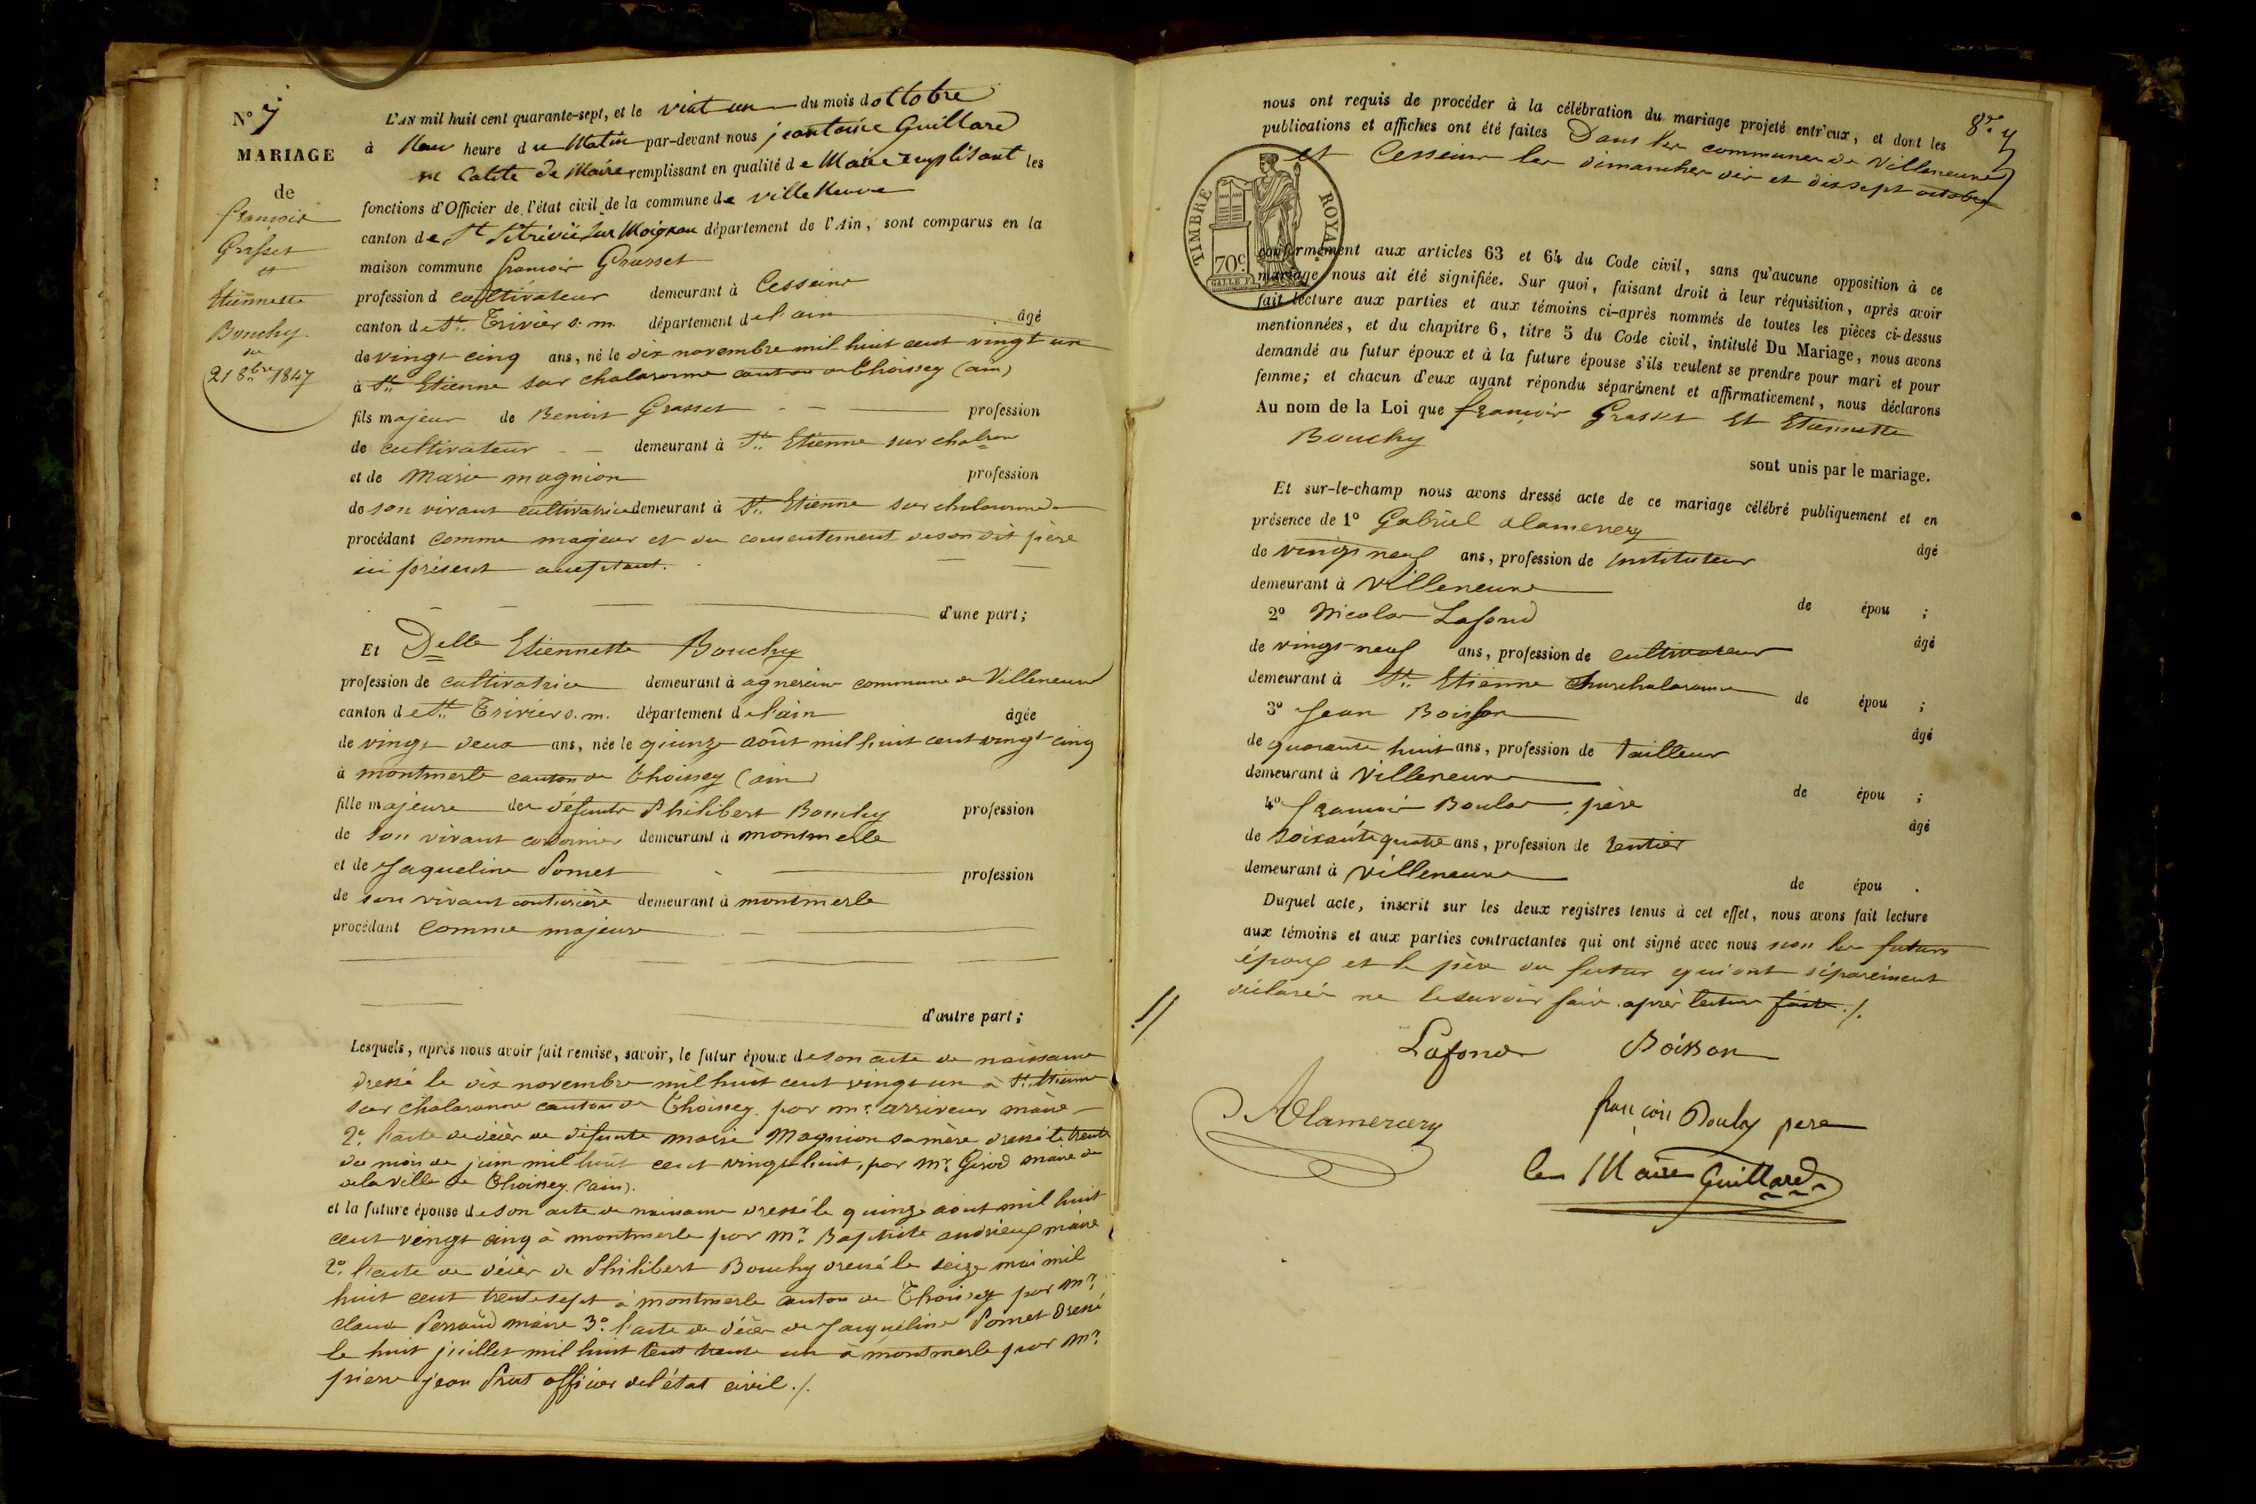 N° 7
MARIAGE
de
françois
Grasset
et
Etiennette
Bouchy
du
21 8bre 1847
L'AN mil huit cent quarante-sept, et le vint un du mois doctobre
à Neuv heure du Matin par-devant nous jeantoine Guillard
en Calité de Maire remplissant en qualité de Maire remplisant les
fonctions d'Officier de l'état civil de la commune de ville Neuve
canton de St Sitrivié sur Moignan département de l'Ain, sont comparus en la
maison commune françois Grasset
profession d cultivateur demeurant à Cesseins
canton de St. Trivier s. m. département de l'ain âgé
de vingt cinq ans, né le dix novembre mil huit cent vingt un
à St. Etienne sur chalaronne canton de Thoissey (ain)
fils majeur de Benoit Grasset profession
de cultivateur demeurant à St. Etienne sur chalron
et de Marie magnion profession
de son vivant cultivatrice demeurant à St. Etienne sur chalaronne
procédant comme majeur et du consentement deson dit père
ici présent acceptant.
d'une part;
Et Delle Etiennette Bouchy
profession de cultivatrice demeurant à agnereins commune de Villeneuve
canton de St. Trivier s. m. département de l'ain âgée
de vingt deux ans, née le quinze août mil huit cent vingt cinq
à montmerle canton de Thoissey (ain)
fille majeure de défunts Philibert Bouchy profession
de son vivant cordonnier demeurant à montmerle
et de Jaqueline Pomet profession
de son vivant couturière demeurant à montmerle
procédant comme majeure
d'autre part;
Lesquels, après nous avoir fait remise, savoir, le futur époux deson acte de naissance
dressé le dix novembre mil huit cent vingt un à St. Etienne
sur chalaronne canton de Thoissey. par mr. arriveur maire
2°. l'acte de décès de défunte marie Magnion sa mère dressé le trente
du mois de juin mil huit cent vingt huit, par mr. Girod maire de
dela ville de Thoissey. (ain).
et la future épouse deson acte de naissance dressé le quinze aout mil huit
cent vingt cinq à montmerle par mr. Baptiste andrieux maire
2°. l'acte de décès de Philibert Bouchy dressé le seize mai mil
huit cent trente sept à montmerle canton de Thoissey par mr.
claude Perraud maire 3°. l'acte de décès de Jacqueline Pomet dressé
le huit juillet mil huit cent trente un à montmerle par mr.
pierre jean Prat officier del'état civil./.
8re. 7
nous ont requis de procéder à la célébration du mariage projeté entr'eux, et dont les
publications et affiches ont été faites Dans les communes de Villeneuve
et Cesseins les dimanches dix et dixsept octobre
TIMBRE ROYAL
70c.
conformément aux articles 63 et 64 du Code civil, sans qu'aucune opposition à ce
mariage nous ait été signifiée. Sur quoi, faisant droit à leur réquisition, après avoir
fait lecture aux parties et aux témoins ci-après nommés de toutes les pièces ci-dessus
mentionnées, et du chapitre 6, titre 5 du Code civil, intitulé Du Mariage, nous avons
demandé au futur époux et à la future épouse s'ils veulent se prendre pour mari et pour
femme; et chacun d'eux ayant répondu séparément et affirmativement, nous déclarons
Au nom de la Loi que françois Grasset Et Etiennette
Bouchy
sont unis par le mariage.
Et sur-le-champ nous avons dressé acte de ce mariage célébré publiquement et en
présence de 1° Gabriel alamercery
de vingt neuf ans, profession de instituteur âgé
demeurant à Villeneuve de épou ;
2° Nicolas Lafond
de vingt neuf ans, profession de cultivateur âgé
demeurant à St. Etienne surchalaronne de épou ;
3° Jean Boisson
de quarante huit ans, profession de tailleur âgé
demeurant à Villeneuve de épou ;
4° françois Boulas père
de soixante quatre ans, profession de rentier âgé
demeurant à Villeneuve de épou .
Duquel acte, inscrit sur les deux registres tenus à cet effet, nous avons fait lecture
aux témoins et aux parties contractantes qui ont signé avec nous non les futurs
époux et le père du futur qui ont séparément
déclaré ne le savoir faire. après lecture faite ./.
Lafond Boisson
Alamercery
françois père
le Maire Guillard